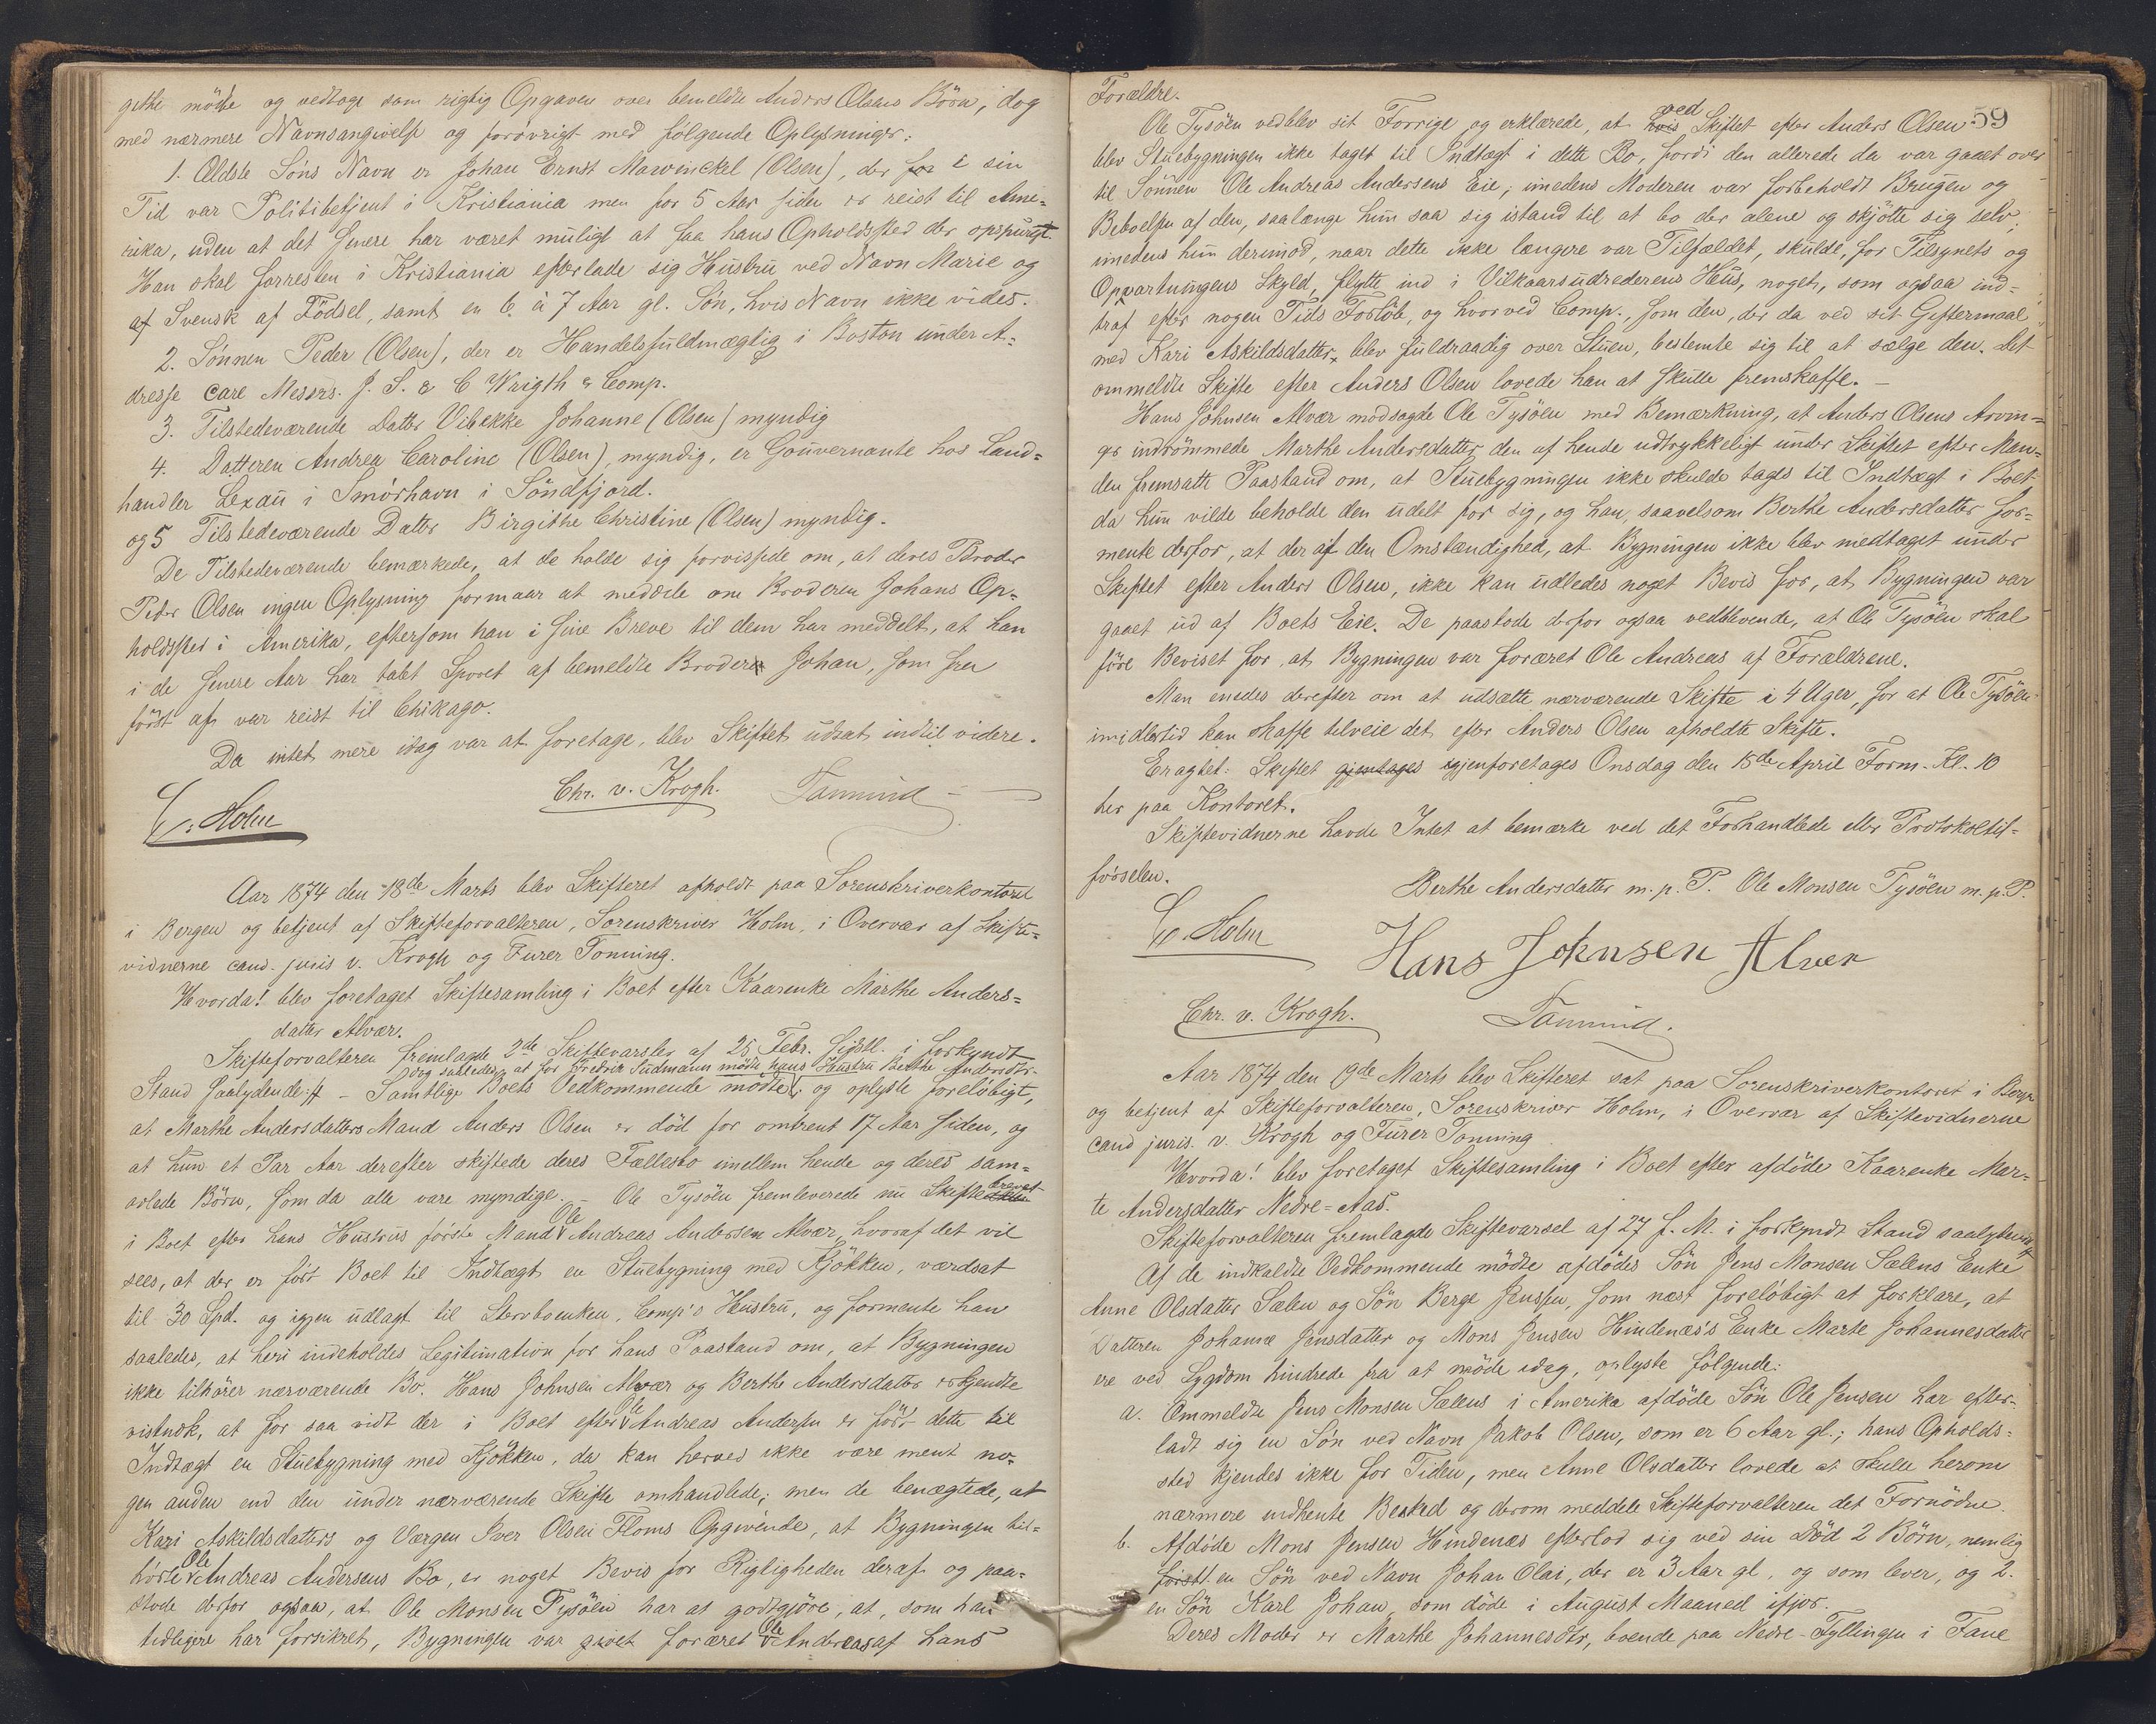 githe mødte og vedtoge som rigtig Opgaven over bemeldte Anders Olsens Börn, dog
med nærmere Navnsangivelse og forøvrigt med følgende Oplysninger:
1. Ældste Söns Navn er Johan Ernst Marwinckel (Olsen), der for i sin
Tid var Politibetjent i Kristiania men for 5 Aar siden er reist til Ame-
rika, uden at det senere har været muligt at faa hans Opholdssted der opspurgt.
Han skal forresten i Kristiania efterlade sig Hustru ved Navn Marie og
af Svensk af Födsel, samt en 6 à 7 Aar gl. Sön, hvis Navn ikke vides.
2. Sönnen Peder (Olsen), der er Handelsfuldmægtig i Boston under A-
dresse Care Messrs. J. S. & C Wrigth & Comp.
3. Tilstedeværende Datter Vibekke Johanne (Olsen) myndig
4. Datteren Andrea Caroline (Olsen), myndig, er Gouvernante hos Land-
handler Lexau i Smörhavn i Söndfjord.
og 5 Tilstedeværende Datter Birgithe Christine (Olsen) myndig.
De Tilstedeværende bemærkede, at de holde sig forvissede om, at deres Broder
Peder Olsen ingen Oplysning formaar at meddele om Broderen Johans Op-
holdssted i Amerika, eftersom han i sine Breve til dem har meddelt, at han
i de senere Aar har tabt Sporet af bemeldte Broder Johan, som fra
först af var reist til Chikago.
Da intet mere idag var at foretage, blev Skiftet udsat indtil videre.
C. Holm Chr. v. Krogh.
Aar 1874 den 18de Marts blev Skifteret afholdt paa Sorenskriverkontoret
i Bergen og betjent af Skifteforvalteren, Sorenskriver Holm, i Overvær af Skifte-
vidnerne cand. juris v. Krogh og Furer Tonning.
Hvorda! blev foretaget Skiftesamling i Boet efter Kaarenke Marthe Anders-
datter Alvær.
Skifteforvalteren fremlagde 2de Skiftevarsler af 25 Febr. sidstl. i forkyndt
dog saaledes, at for Fredrik Sudmann mødte hans Hustru Berthe Andersdtr.
Stand saalydende: # - Samtlige Boets Vedkommende mødte og oplyste foreløbigt,
at Marthe Andersdatters Mand Anders Olsen er död for omtrent 17 Aar siden, og
at hun et Par Aar derefter skiftede deres Fællesbo imellem hende og deres sam-
avlede Börn, som da alle vare myndige. - Ole Tysöen fremleverede nu Skiftebrevet
i Boet efter hans Hustrus første Mand Ole Andreas Andersen Alvær, hvoraf det vil
sees, at der er fört Boet til Indtægt en Stuebygning med Kjökken, værdsat
til 30 Spd. og igjen udlagt til Stervboenken, Comp's Hustru, og formente han
saaledes, at heri indeholdes Legitimation for hans Paastand om, at Bygningen
ikke tilhører nærværende Bo. Hans Johnsen Alvær og Berthe Andersdatter erkjendte
vistnok, at for saa vidt der i Boet efter Ole Andreas Andersen er fört dette til
Indtægt en Stuebygning med Kjökken, da kan herved ikke være ment no-
gen anden end den under nærværende Skifte omhandlede; men de benægtede, at
Kari Askildsdatters og Værgen Iver Olsen Floms Opgivende, at Bygningen til-
hörte Ole Andreas Andersens Bo, er noget Bevis for Rigtigheden deraf og paa-
stode derfor ogsaa, at Ole Monsen Tysöen har at godtgjöre, at, som han
tidligere har forsikret, Bygningen var givet foræret Ole Andreas af hans
59
Forældre.
Ole Tysöen vedblev sit Forrige og erklærede, at hvis ved Skiftet efter Anders Olsen
blev Stuebygningen ikke taget til Indtægt i dette Bo, fordi den allerede da var gaaet over
til Sönnen Ole Andreas Andersens Eie, imedens Moderen var forbeholdt Brugen og
Beboelsen af den, saalænge hun saa sig istand til at bo der alene og skjötte sig selv;
imedens hun derimod, naar dette ikke længere var Tilfældet, skulde, for Tilsynets og
Oppartningens Skyld, flytte ind i Vilkaarsudrederens Hus, noget, som ogsaa ind-
traf efter nogen Tids Forlöb, og hvorved Comp., som den, der da ved sit Giftermaal
med Kari Askildsdatter, blev fuldraadig over Stuen, bestemte sig til at sælge den. Det
ommeldte Skifte efter Anders Olsen lovede han at skulle fremskaffe. -
Hans Johnsen Alvær modsagde Ole Tysöen med Bemærkning, at Anders Olsens Arvin-
ger indrömmede Marthe Andersdatter den af hende udtrykkeligt under Skiftet efter Man-
den fremsatte Paastand om, at Stuebygningen ikke skulde tages til Indtægt i Boet
da hun vilde beholde den udelt for sig, og han saavelsom Berthe Andersdatter for-
mente derfor, at der af den Omstændighed, at Bygningen ikke blev medtaget under
Skiftet efter Anders Olsen, ikke kan udledes noget Bevis for, at Bygningen var
gaaet ud af Boets Eie. De paastode derfor ogsaa vedblivende, at Ole Tysöen skal
føre Beviset for, at Bygningen var foræret Ole Andreas af Forældrene.
Man enedes derefter om at udsætte nærværende Skifte i 4 Uger, for at Ole Tysöen
imidlertid kan skaffe tilveie det efter Anders Olsen afholdte Skifte.
Eragtet: Skiftet gjentages igjenforetages Onsdag den 15de April Form. Kl. 10
her paa Kontoret.
Skiftevidnerne havde Intet at bemærke ved det Forhandlede eller Protokoltil-
førselen.
Berthe Andersdatter m. p. P. Ole Monsen Tysöen m. p. P.
C. Holm Hans Johnsen Alvær
Chr. v. Krogh.
Aar 1874 den 19de Marts blev Skifteret sat paa Sorenskriverkontoret i Bergen
og betjent af Skifteforvalteren, Sorenskriver Holm, i Overvær af Skiftevidnerne
cand juris. v. Krogh og Furer Tonning
Hvorda! blev foretaget Skiftesamling i Boet efter afdöde Kaarenke Mar-
te Andersdatter Nedre-Aas.
Skifteforvalteren fremlagde Skiftevarsel af 27 f. M. i forkyndt Stand saalydende #
Af de indkaldte Vedkommende mödte afdödes Sön Jens Monsen Sælens Enke
Anne Olsdatter Sælen og Sön Berge Jensen, som næst foreløbigt at forklare, at
Datteren Johanna Jensdatter og Mons Jensen Hindenæs's Enke Marte Johannesdatter
ere ved Sygdom hindrede fra at møde idag, oplyste følgende:
a. Ommeldte Jens Monsen Sælens i Amerika afdöde Sön Ole Jensen har efter-
ladt sig en Sön ved Navn Jakob Olsen, som er 6 Aar gl.; hans Opholds-
sted kjendes ikke for Tiden, men Anne Olsdatter lovede at skulle herom
nærmere indhente Besked og derom meddele Skifteforvalteren det Fornödne.
b. Afdöde Mons Jensen Hindenæs efterlod sig ved sin Död 2 Börn, nemlig
først 1 en Sön ved Navn Johan Olai, der er 3 Aar gl, og som lever, og 2.
en Sön Karl Johan, som döde i August Maaned ifjor.
Deres Moder er Marthe Johannesdtr, boende paa Nedre-Tyllingen i Fane